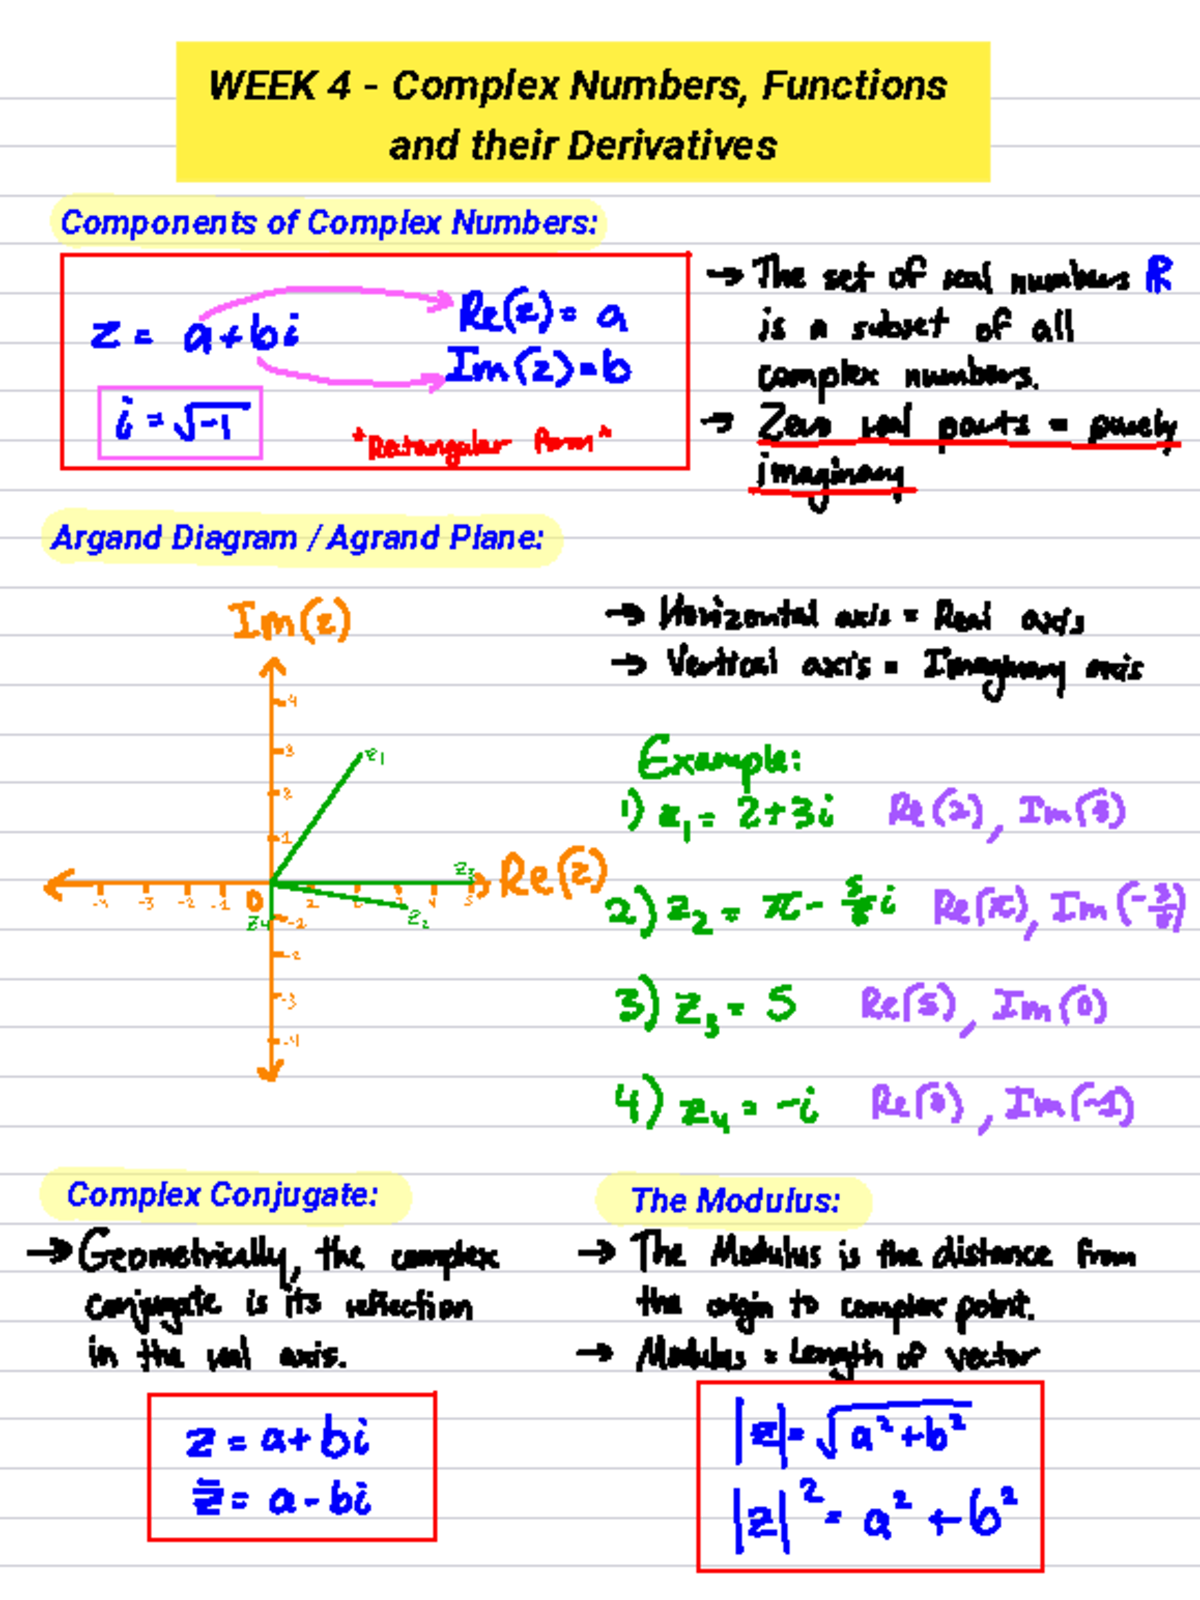 WEEK 4 - Complex Numbers, Functions
and their Derivatives
Components of Complex Numbers:
z = a+bi
Re(z) = a
Im(z) = b
i = √-1
"Rectangular Form"
→ The set of real numbers ℝ
is a subset of all
complex numbers.
→ Zero real parts = purely
imaginary
Argand Diagram / Agrand Plane:
Im(z)
4
3
2
1
-4 -3 -2 -1 0
Re(z)
z₁
z₂
z₃
z₄
-2
-3
-4
→ Horizontal axis = Real axis
→ Vertical axis = Imaginary axis
Example:
1) z₁ = 2+3i Re(2), Im(3)
2) z₂ = π - i Re(π), Im
3) z₃ = 5 Re(5), Im(0)
4) z₄ = -i Re(0), Im(-1)
Complex Conjugate:
→ Geometrically, the complex
conjugate is its reflection
in the real axis.
z = a + bi
z̄ = a - bi
The Modulus:
→ The Modulus is the distance from
the origin to complex point.
→ Modulus = Length of vector
|z| = √a² + b²
|z|² = a² + b²